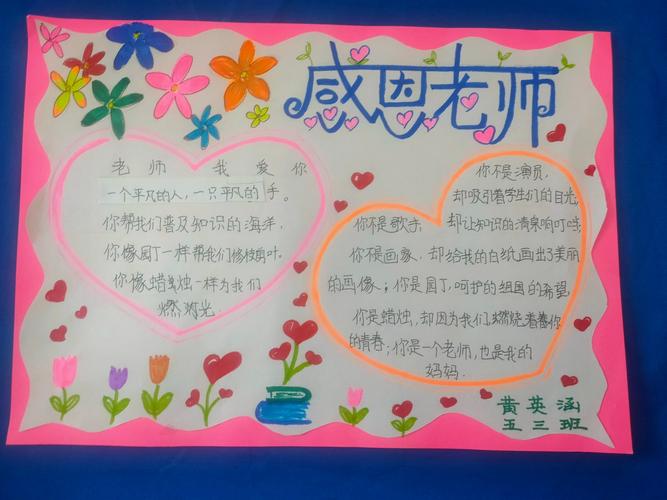 感恩老师
老师 我爱你
一个平凡的人,一只平凡的手。
你帮我们普及知识的海洋,
你像园丁一样帮我们修枝剪叶.
你像蜡烛一样为我们
燃灯光.
你不是演员,
却吸引着学生们的目光,
你不是歌手 却让知识的清泉响叮咚;
你不是画家、却给我的白纸画出了美丽
的画像;你是园丁,呵护的祖国的希望
你是蜡烛,却因为我们,燃烧着你
的青春;你是一个老师,也是我的
妈妈.
黄英涵
五三班